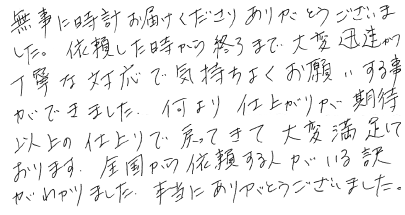 無事に時計お届けくださりありがとうございま
した。依頼した時から終るまで大変迅速かつ
丁寧な対応で気持ちよくお願いする事
ができました。何より仕上がりが期待
以上の仕上りで戻ってきて大変満足して
おります。全国から依頼する人がいる訳
がわかりました。本当にありがとうございました。